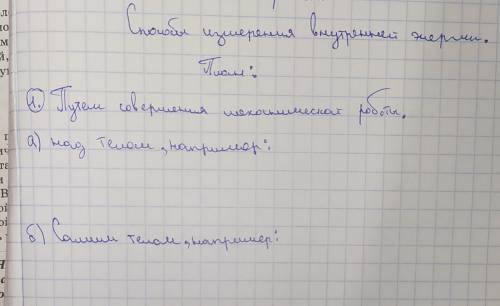 Способы измерения внутренней энергии.
План:
1. Путем совершения механической работы.
а) над телом, например:
б) Самим телом, например: